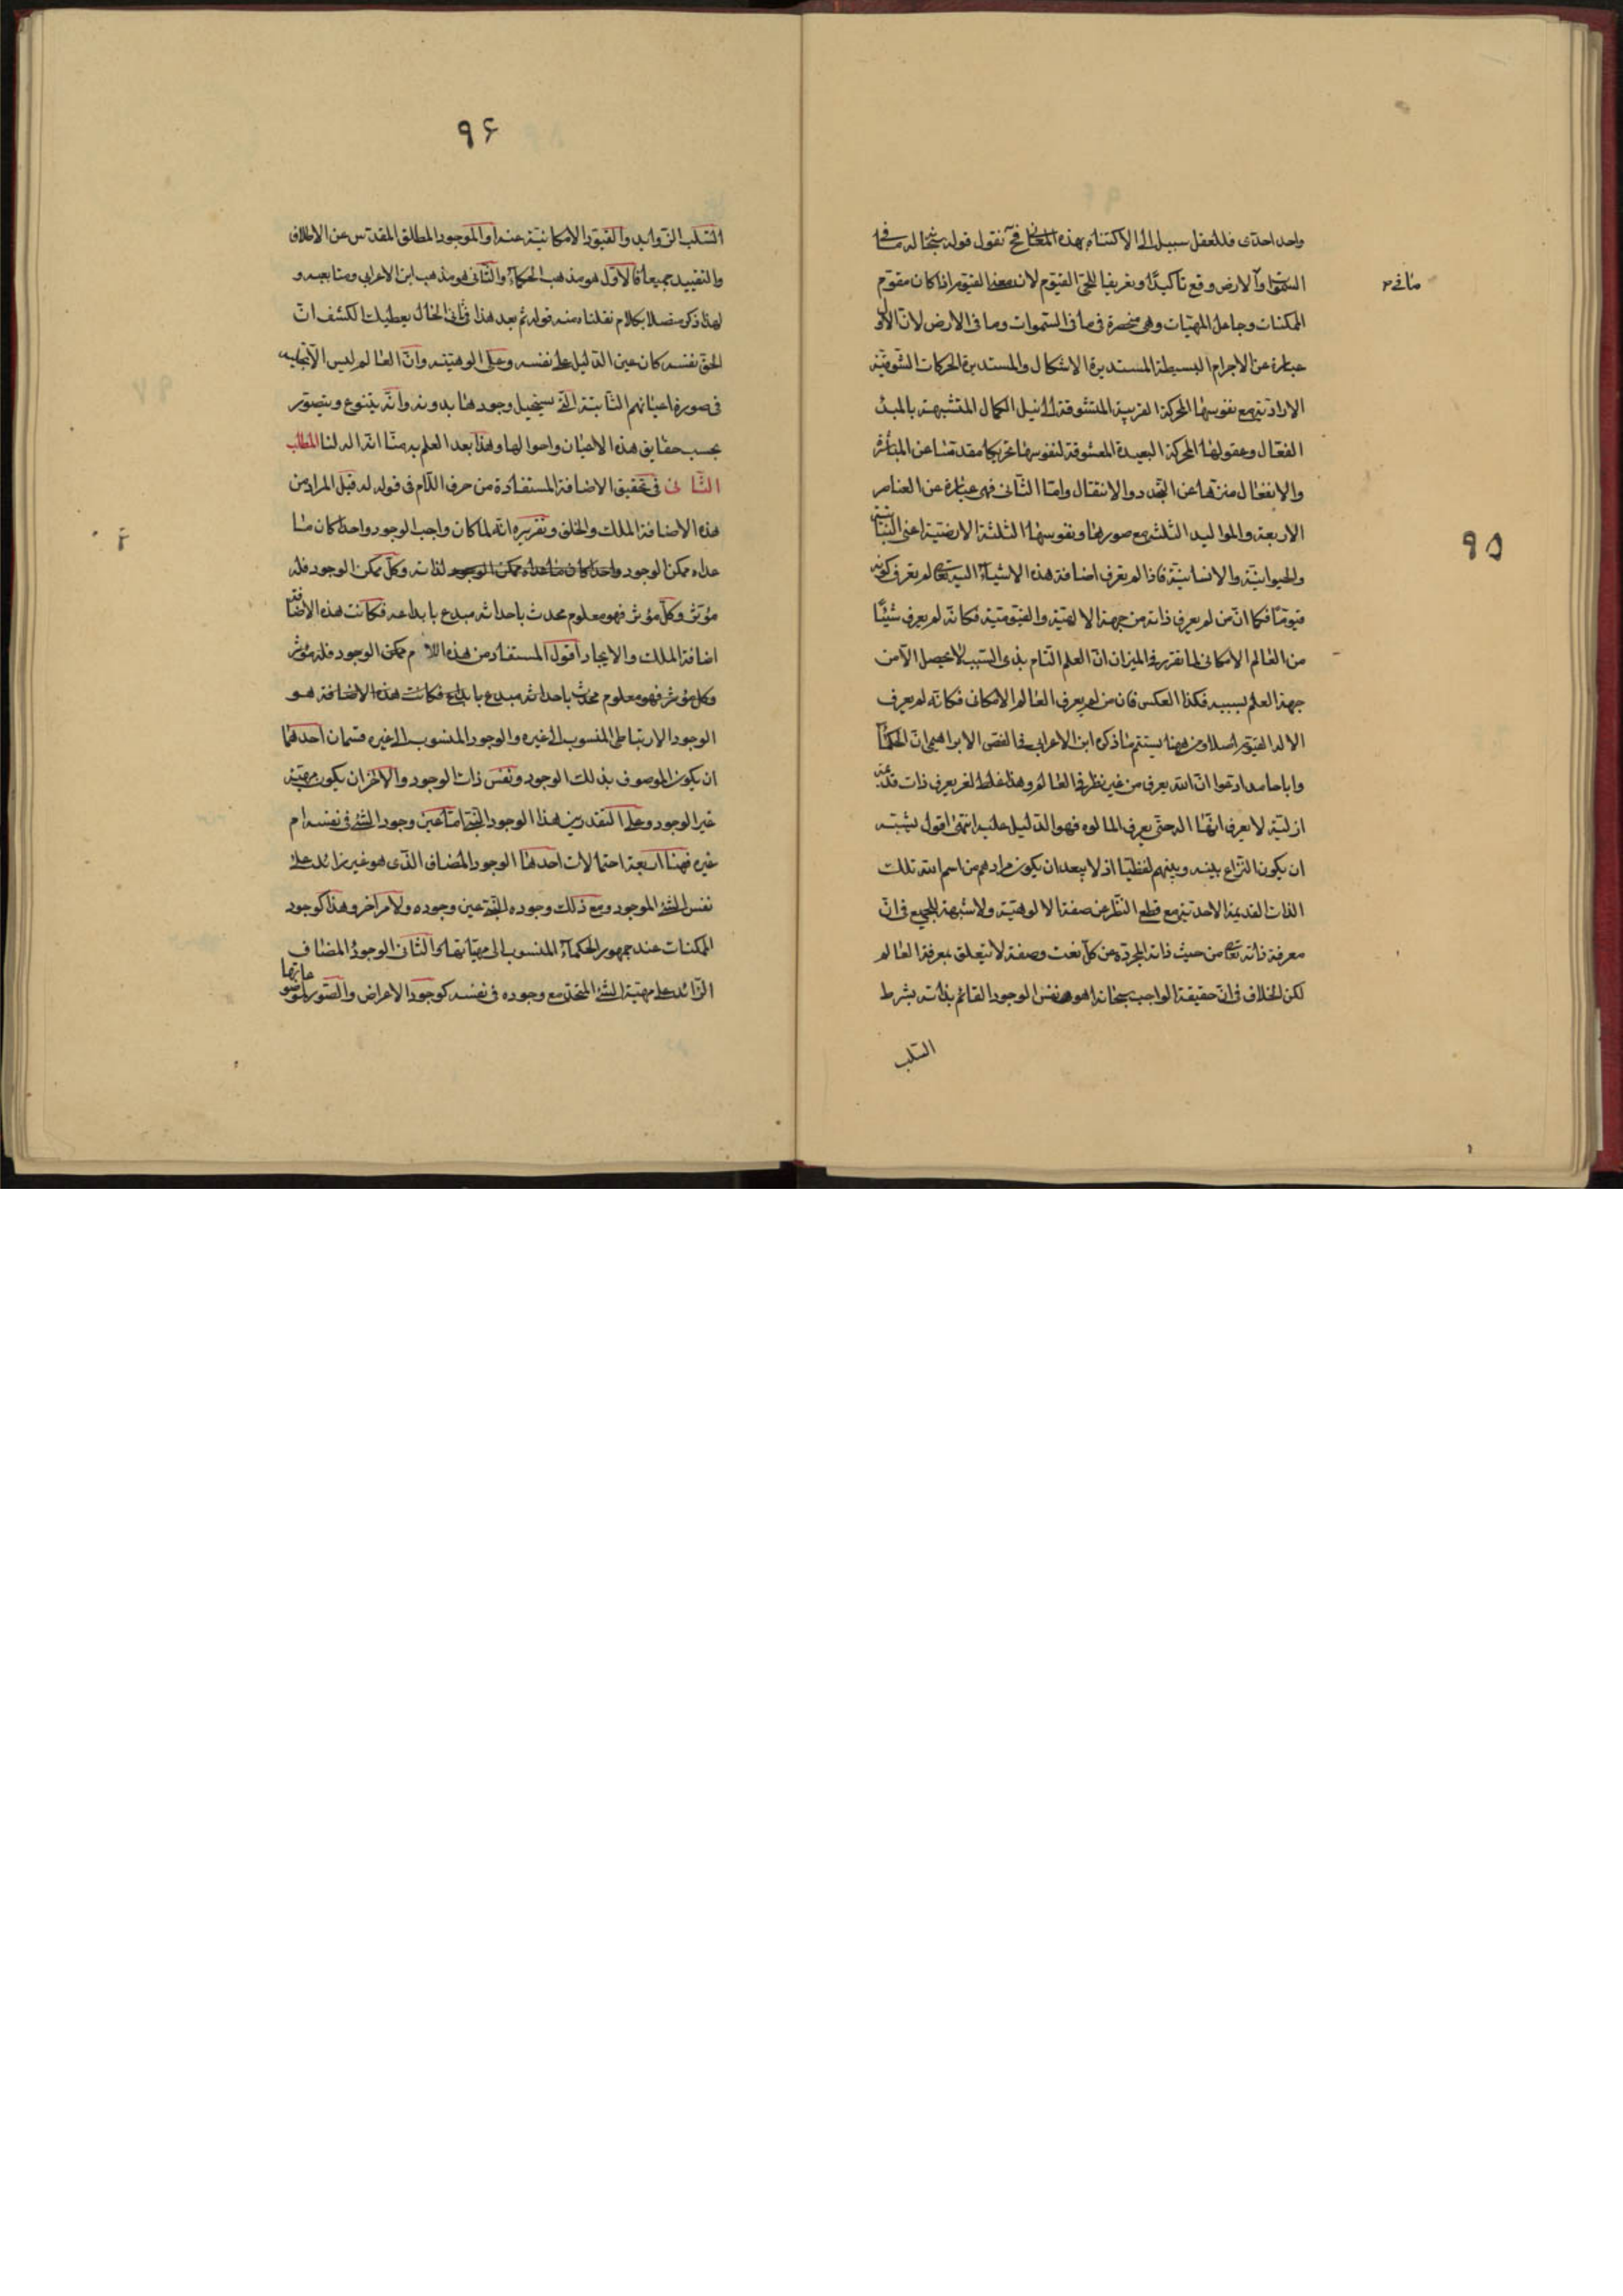 واحد احدى فللعقل سبيل الى الاكتناه بهذه المعانى فح نقول قوله سبحانه له ما فى
السموات والارض وقع تأكيدًا وتعريفا للحى القيوم لان معنا القيوم اذا كان مقوّم
الممكنات وجاعل المهيّات وهى منحصرة فى ما فى السّموات وما فى الارض لانّ الاول
عبارة عن الاجرام البسيطة المستديرة الاشكال والمستديرة الحركات الشّوقيّة
الاراديّة مع نفوسها المحركة القريبة المتشوقة الى نيل الكمال المتشبهة بالمبدء
الفعّال وعقولها المحركة البعيدة المعشوقة لنفوسها تحريكا مقدّسا عن المتأثر
والانفعال منزها عن التجدد والانتقال وامّا الثّانى فهى عبارة عن العناصر
الاربعة والمواليد الثلثة مع صورها ونفوسها الثلثة الارضيّة اعنى النباتيّة
والحيوانيّة والانسانيّة فاذا لم يعرف اضافة هذه الاشياء اليه تعالى لم يعرف كونه
قيوما فكما انّ من لم يعرف ذاته من جهة الالهيّة والقيّوميّة فكانّه لم يعرف شيئًا
من العالم الامكانى لما تقرر فى الميزان انّ العلم التام بذى السبب لا يحصل الّا من
جهة العلم بسببه فكذا العكس فان من لم يعرف العالم الامكانى فكانّه لم يعرف
الاله القيّوم اصلا ومن ههنا يستتم ما ذكره ابن الاعرابى فى الفصّ الابراهيمى انّ الحكماء
وابا حامد ادعوا انّ الله يعرف من غير نظر فى العالم وهذا غلط نعم يعرف ذات قديمة
ازليّة لا يعرف انّها اله حتّى يعرف المالوه فهو الدّليل عليه انتهى اقول يشبه
ان يكون النّزاع بينه وبينهم لفظيّا اذ لا يبعد ان يكون مرادهم من اسم الله تلك
الذات القديمة الاحديّة مع قطع النّظر عن صفة الالوهيّة ولا شبهة للجميع فى انّ
معرفة ذاته تعالى من حيث ذاته المجردة عن كلّ نعت وصفة لا يتعلق بمعرفة العالم
لكن الخلاف فى انّ حقيقة الواجب سبحانه اهو نفس الوجود القائم بذاته بشرط
السّلب
ما فى
٩٥
٩۶
السّلب الزّوايد والقيود الامكانيّة عنه او الموجود المطلق المقدّس عن الاطلاق
والتقييد جميعا فالاوّل هو مذهب الحكماء والثّانى هو مذهب ابن الاعرابى ومتابعيه و
لهذا ذكر متصلا بكلام نقلناه منه قوله ثم بعد هذا فى ثانى الحال يعطيك الكشف انّ
الحقّ نفسه كان عين الدّليل على نفسه وعلى الوهيّته وانّ العالم ليس الّا تجليه
فى صورة اعيانهم الثّابتة الّتى يستحيل وجودها بدونه وانّه يتنوع ويتصوّر
بحسب حقايق هذه الاعيان واحوالها وهذا بعد العلم به منّا انّه اله لنا المطلب
الثّانى فى تحقيق الاضافة المستفادة من حرف اللّام فى قوله له قيل المراد من
هذه الاضافة الملك والخلق وتقريره انّه لما كان واجب الوجود واحدا كان ما
عداه ممكن الوجود واحدا كان ما عداه ممكن الوجود لذاته وكلّ ممكن الوجود فله
مؤثر وكلّ مؤثر فهو معلوم محدث باحداثه مبدع بابداعه فكانت هذه الاضافة
اضافة الملك والايجاد اقول المستفاد من هذه اللام ممكن الوجود فله مؤثر
وكل مؤثر فهو معلوم محدث باحداثه مبدع بابداعه فكانت هذه الاضافة هو
الوجود الارتباطى المنسوب الى غيره والوجود المنسوب الى غيره قسمان احدهما
ان يكون الموصوف بذلك الوجود ونفس ذات الوجود والآخر ان يكون مهيّة
غير الوجود وعلى التقديرين هذا الوجود النّعتى امّا عين وجود الشّئ فى نفسه ام
غيره فهنا اربعة احتمالات احدها الوجود المضاف الّذى هو غير زائد على
نفس الشّئ الموجود ومع ذلك وجوده النّعتى عين وجوده ولا امر آخر وهذا كوجود
الممكنات عند جمهور الحكماء المنسوب الى مهيّاتها والثّانى الوجود المضاف
الزّائد على مهيّة الشّئ المتحد مع وجوده فى نفسه كوجود الاعراض والصّور لموضوعاتها